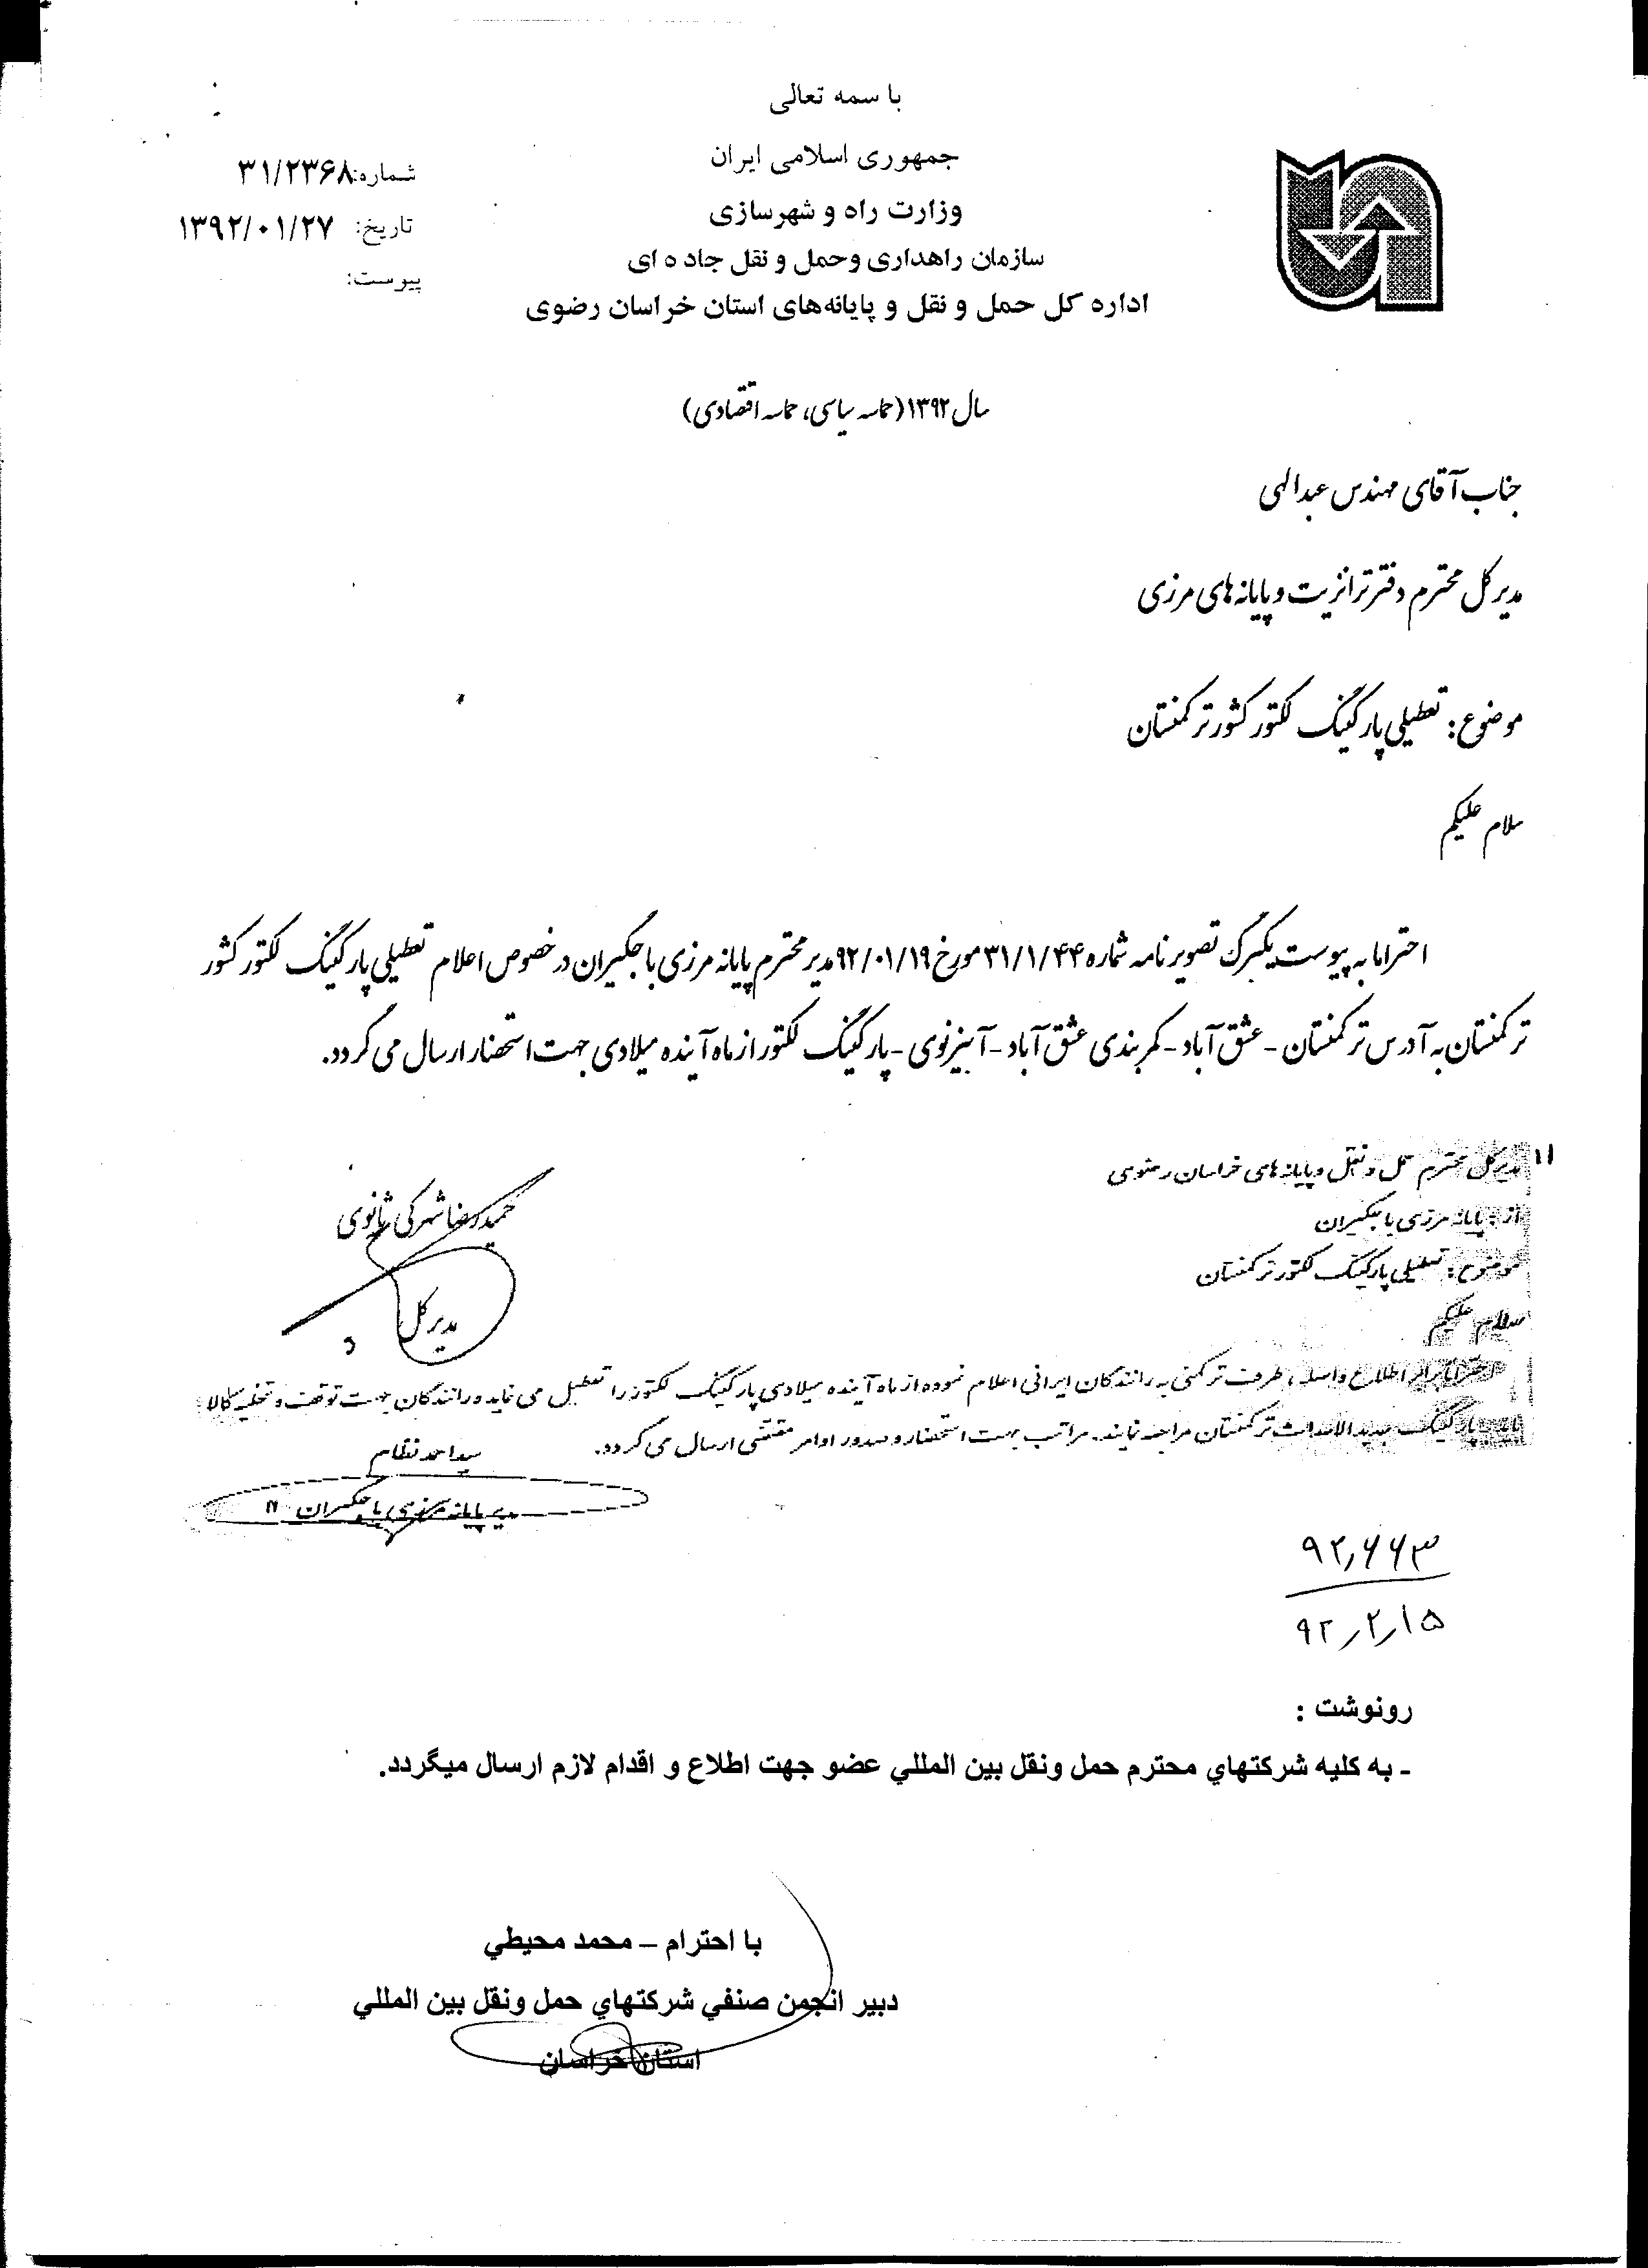 با سمه تعالی
جمهوری اسلامی ایران
وزارت راه و شهرسازی
سازمان راهداری وحمل و نقل جاده ای
اداره کل حمل و نقل و پایانه‌های استان خراسان رضوی
شماره: ۳۱/۲۳۶۸
تاریخ: ۱۳۹۲/۰۱/۲۷
پیوست:
سال ۱۳۹۲(حماسه سیاسی، حماسه اقتصادی)
جناب آقای مهندس عبدالهی
مدیرکل محترم دفتر ترانزیت و پایانه های مرزی
موضوع: تعطیلی پارکینگ لکتور کشور ترکمنستان
سلام علیکم
احتراما به پیوست یکبرگ تصویر نامه شماره ۳۱/۱/۴۴ مورخ ۹۲/۰۱/۱۹ مدیر محترم پایانه مرزی باجگیران در خصوص اعلام تعطیلی پارکینگ لکتور کشور
ترکمنستان به آدرس ترکمنستان - عشق آباد - کمربندی عشق آباد - آبنیر نوی - پارکینگ لکتور از ماه آینده میلادی جهت استحضار ارسال می گردد.
حمیدرضا شهرکی ثانوی
مدیرکل
مدیرکل محترم حمل و نقل و پایانه های خراسان رضوی
از: پایانه مرزی باجگیران
موضوع: تعطیلی پارکینگ لکتور ترکمنستان
سلام علیکم
احتراما برابر اطلاع واصله طرف ترکمنی به رانندگان ایرانی اعلام نموده از ماه آینده میلادی پارکینگ لکتور را تعطیل می نماید و رانندگان جهت توقف و تخلیه کالا
باید به پارکینگ جدید الاحداث ترکمنستان مراجعه نمایند. مراتب جهت استحضار و صدور اوامر مقتضی ارسال می گردد.
سید احمد نظام
مدیر پایانه مرزی باجگیران
۹۲,۶۶۳
۹۲,۲,۱۵
رونوشت :
ـ به کلیه شرکتهاي محترم حمل ونقل بین المللي عضو جهت اطلاع و اقدام لازم ارسال میگردد.
با احترام – محمد محیطي
دبیر انجمن صنفي شرکتهاي حمل ونقل بین المللي
استان خراسان